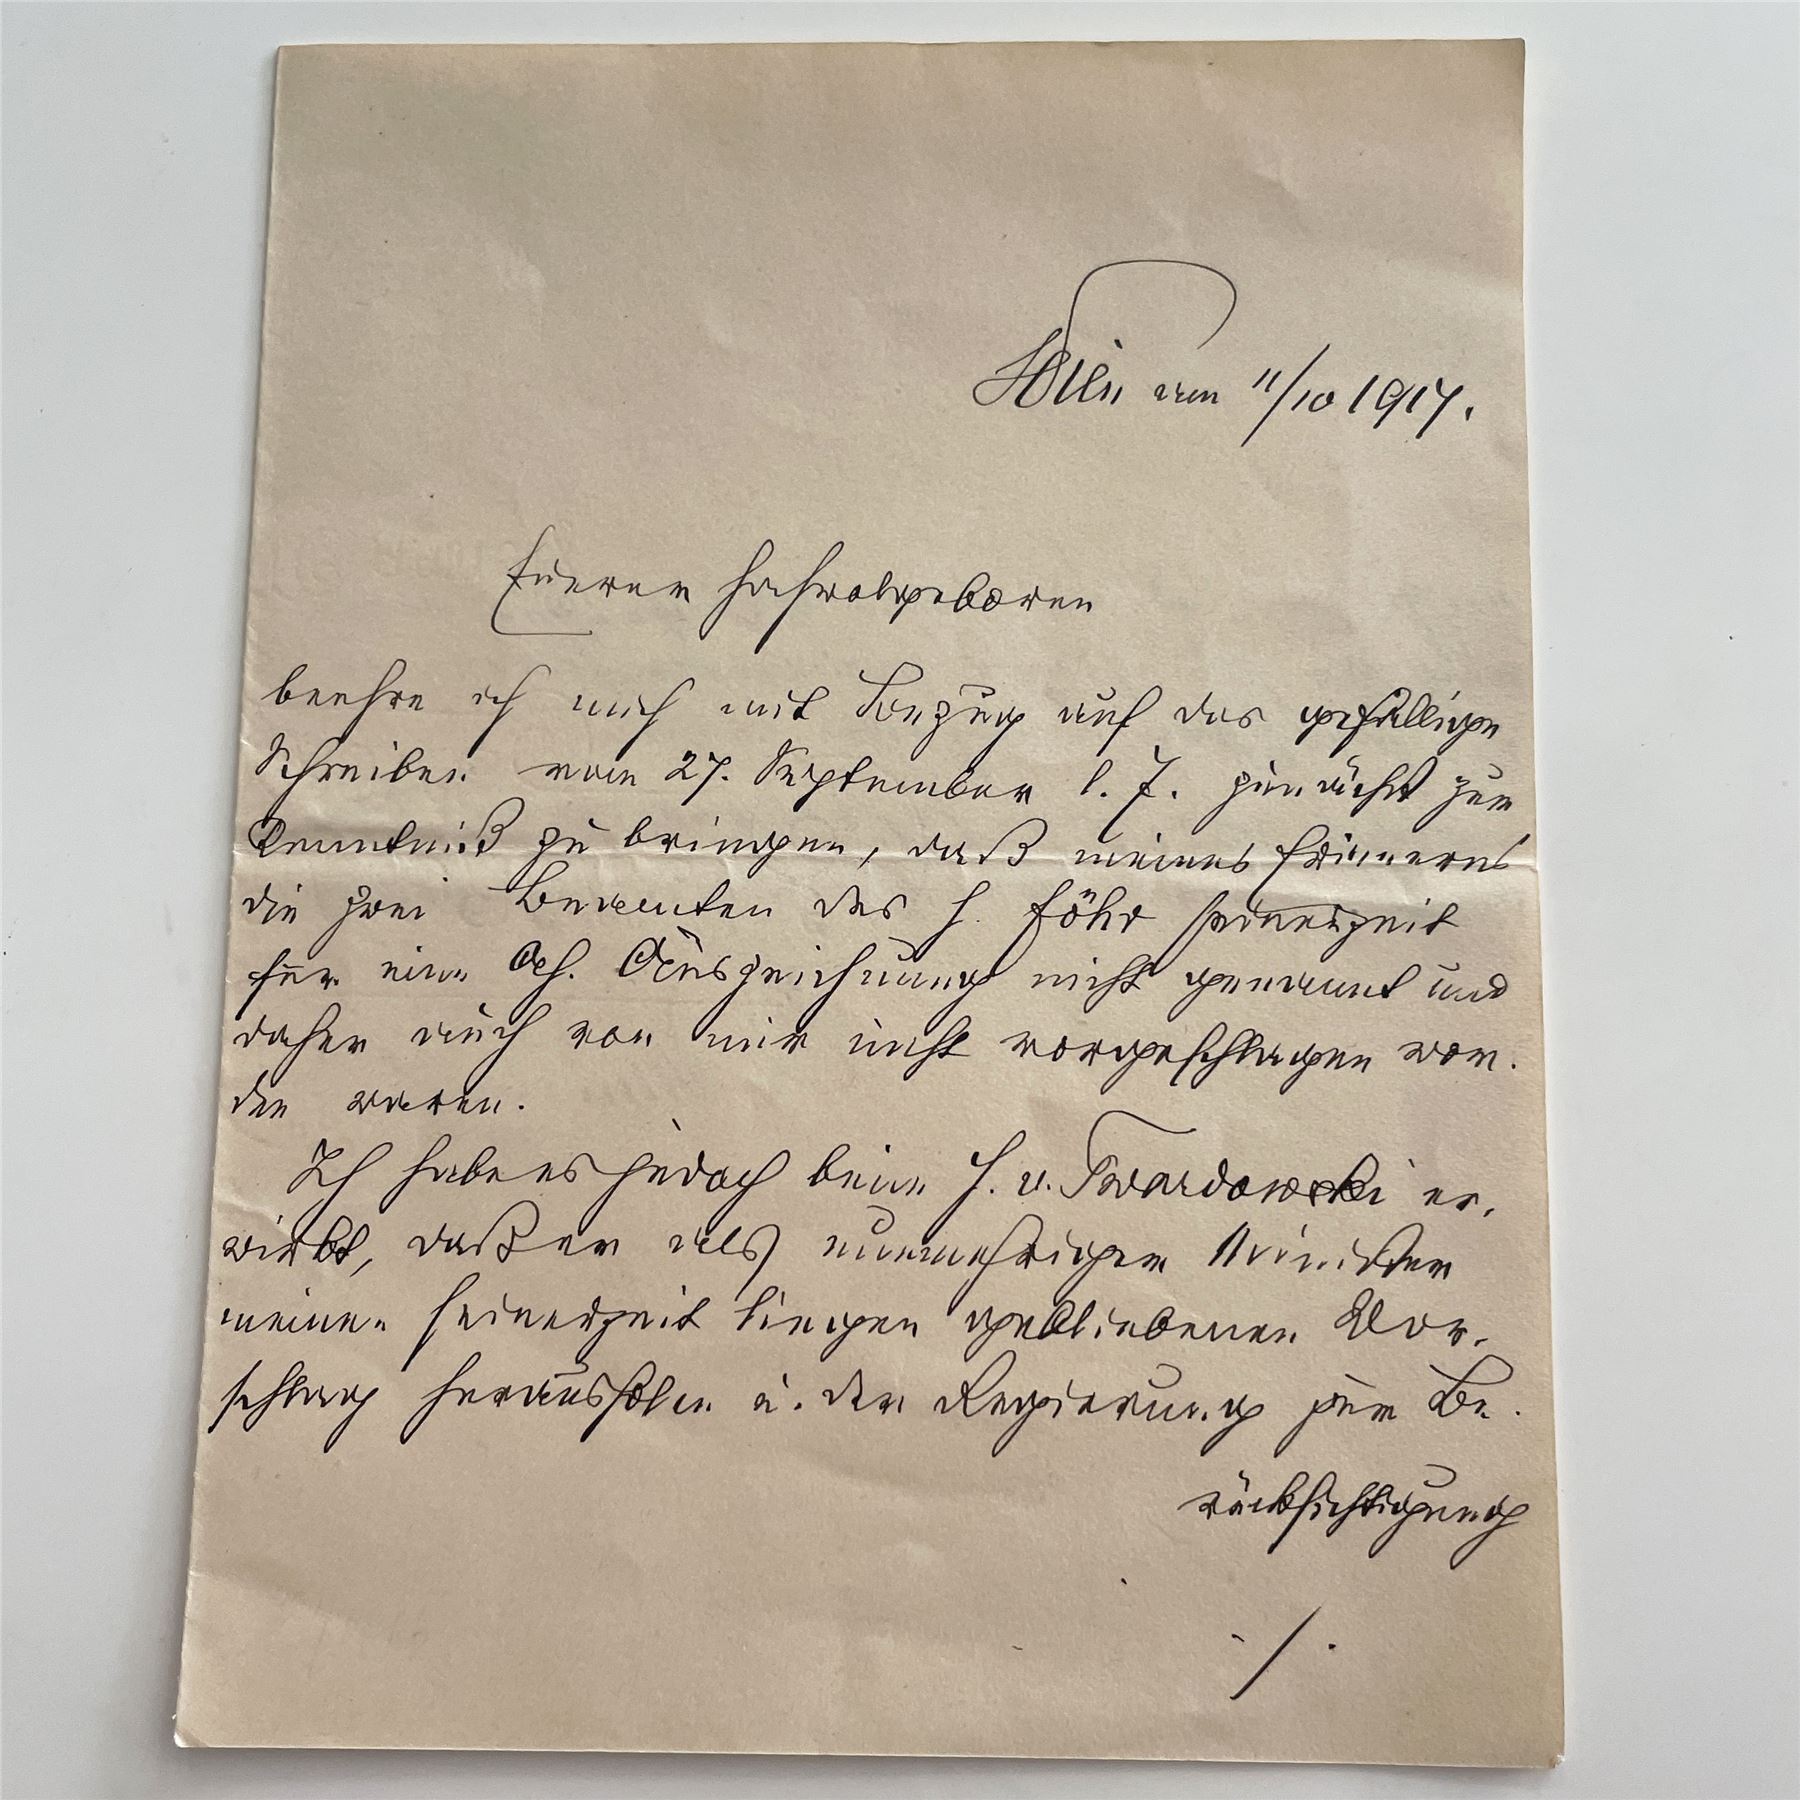 Wien am 11/10 1917.
Euerer Hochwolgeboren
beehre ich mich mit Bezug auf das gefällige
Schreiben vom 27. September l. J. zunächst zur
Kenntniß zu bringen, daß meines Erinnerns
die zwei Beamten des H. Föhr seinerzeit
für eine Ah. Auszeichnung nicht genannt und
daher auch von mir nicht vorgeschlagen wor-
den waren.
Ich habe es jedoch beim H. v. Twardowski er-
wirkt, daß er als nunmehriger Minister
meinen seinerzeit liegen gebliebenen Vor-
schlag heraushole u. der Regierung zur Be-
rücksichtigung
./.